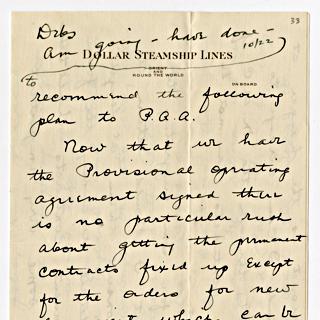 33
Drbs
Am going - have done - 10/22
DOLLAR STEAMSHIP LINES
ORIENT
AND
ROUND THE WORLD
ON BOARD
to
recommend the following
plan to P.A.A.
Now that we have
the Provisional operating
agreement signed there
is no particular rush
about getting the permanent
contracts fixed up except
for the orders for new
which can be